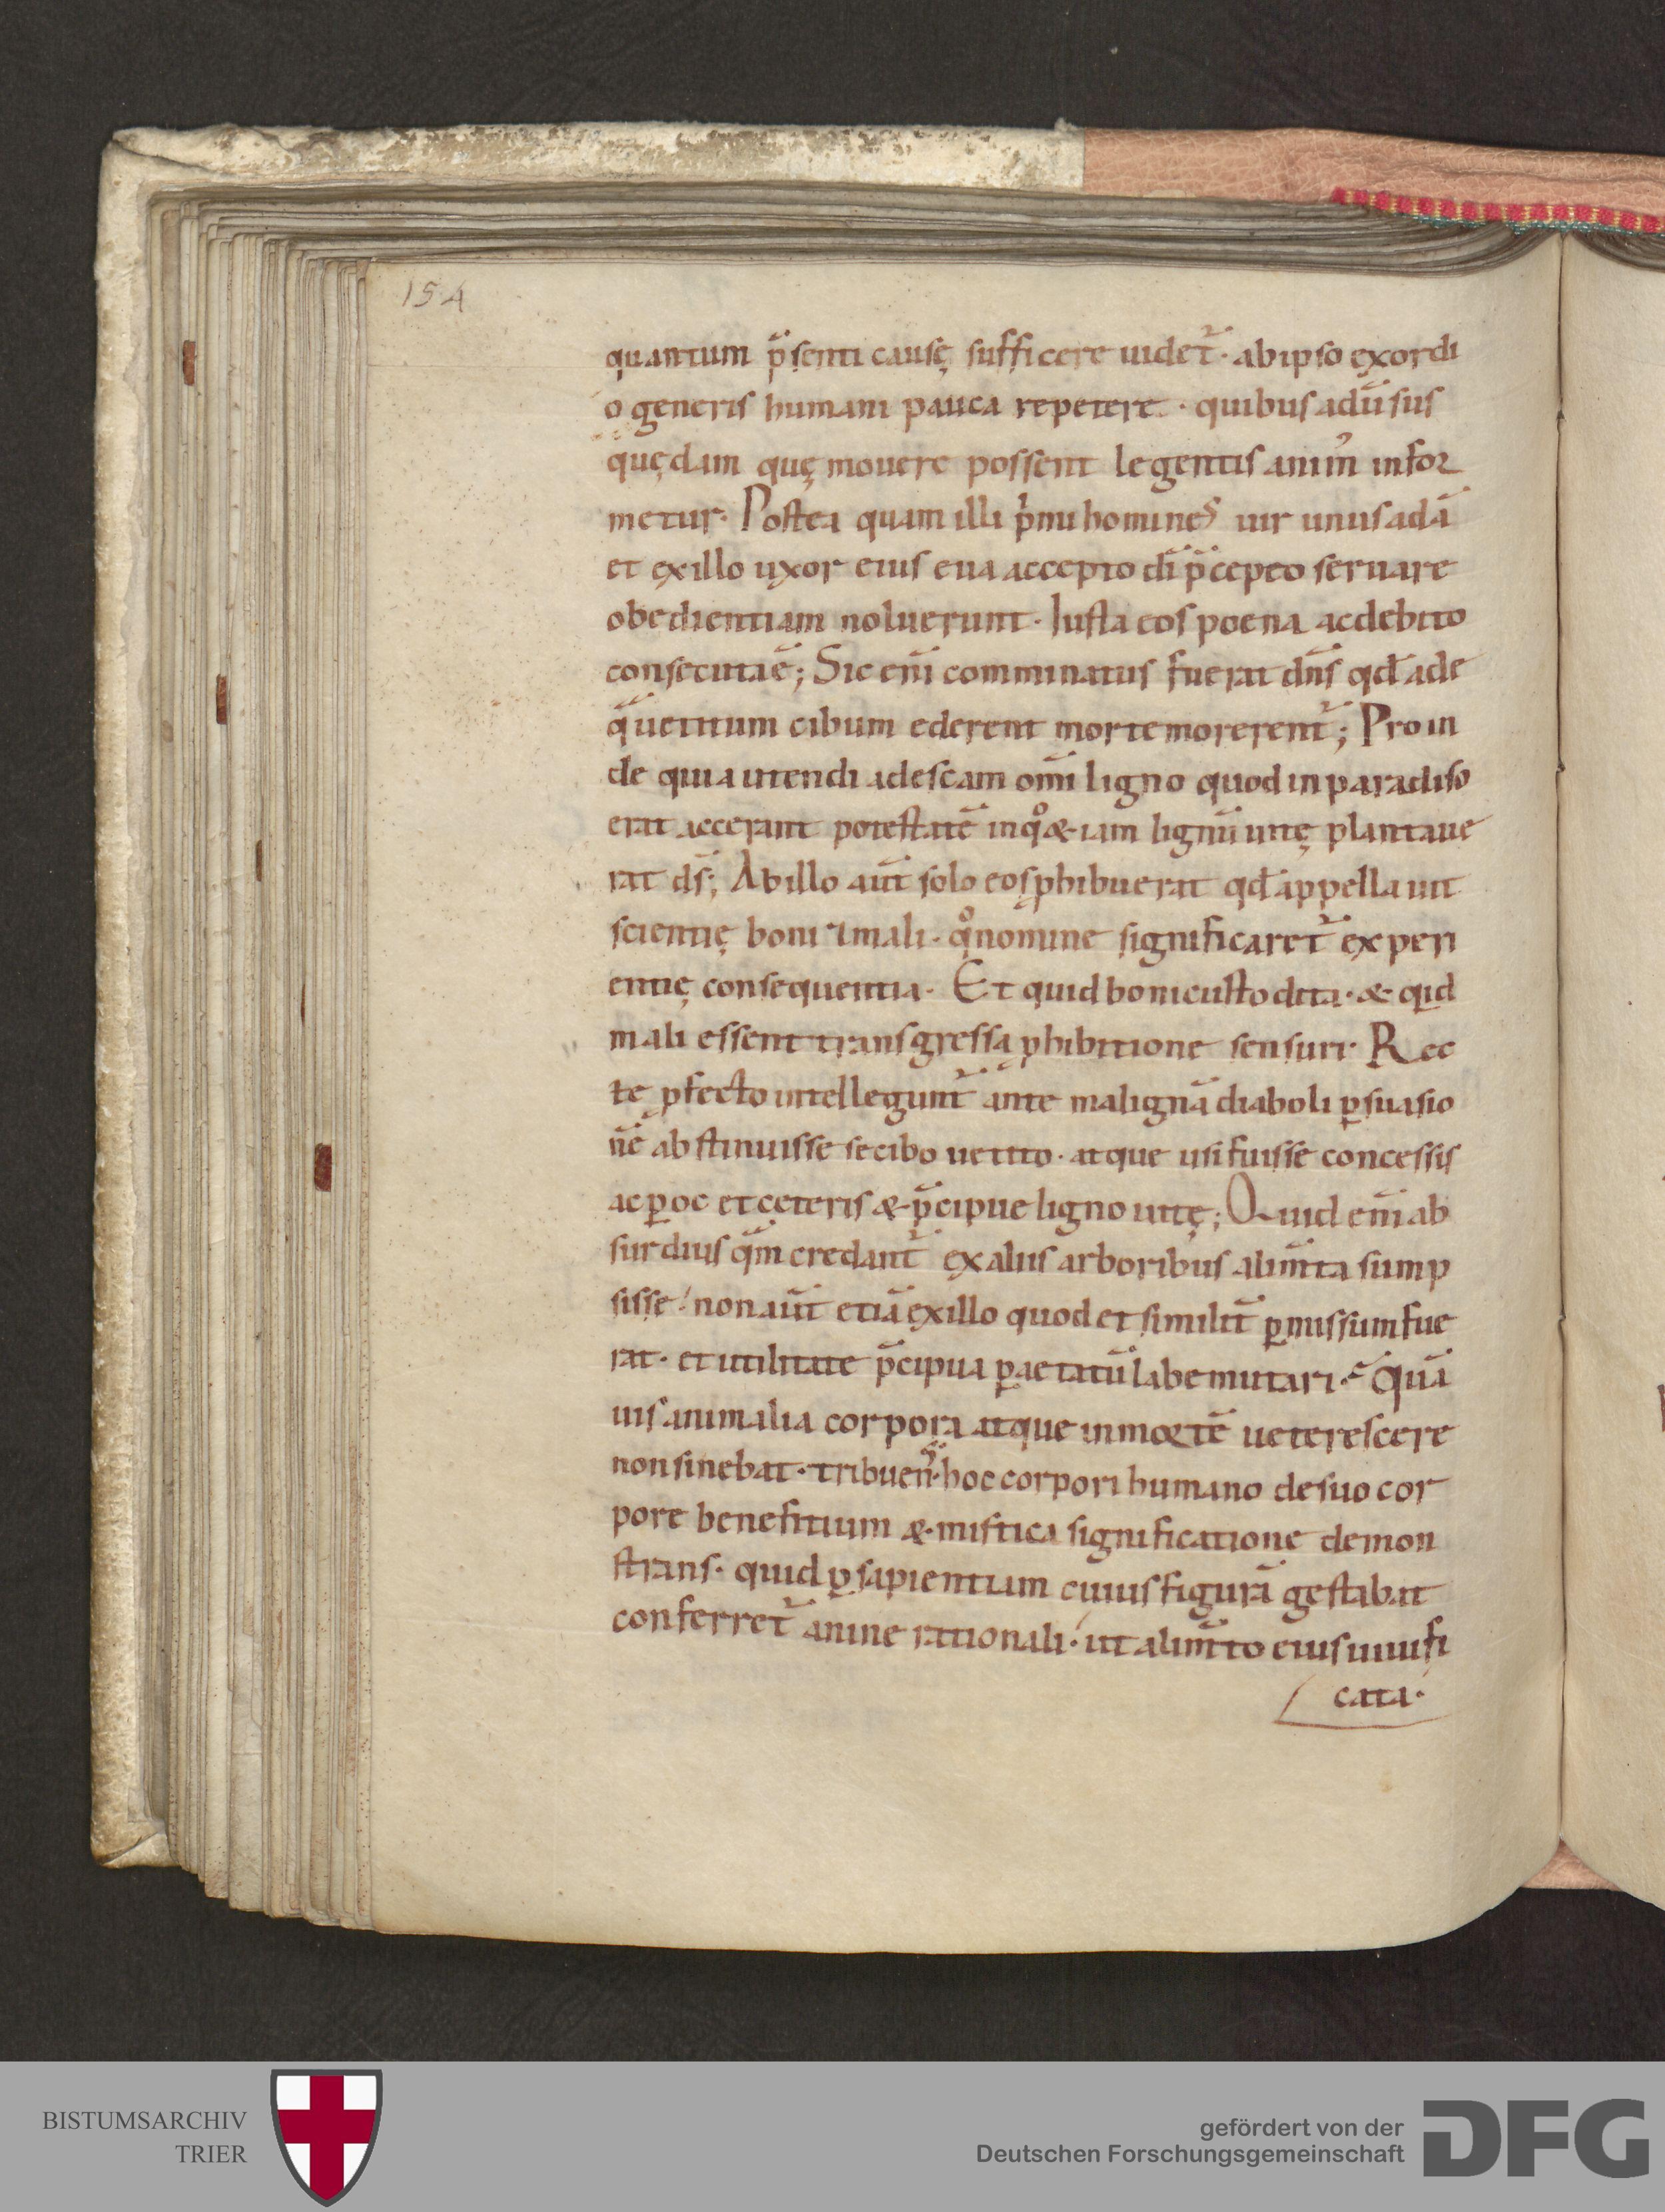 154
quantum p̄senti causę sufficere uidet̃ · ab ipso exordi
o generis humani pauca repetere · quibus adū̃sus
quędam quę mouere possent legentis anim̃ infor
metur · Postea quam illi p̍mi homines uir unus adā
et ex illo uxor eius eua accepto dī p̄cepto seruare
obedientiam noluerunt · Iusta eos poena ac debito
consecuta ē ; Sic eni̅ comminatus fuerat dn̅s qđ a de
q̅ uetitum cibum ederent morte morerent̃ ; Proin
de quia utendi ad escam om̅i ligno quod in paradiso
erat acceˀant potestatē in qͦ & iam lignū uitę plantaue
rat ds̅ ; Ab illo aut̅ solo eos ꝓhibuerat qđ appellauit
scientię boni ⁊ mali · qͦ nomine significaret̃ experi
entię consequentia · Et quid boni custodita · & qid
mali essent transgressa ꝓhibitione sensuri · Rec
te ꝓfecto intellegunt̃ ante malignā diaboli ꝑsuasio
nē abstinuisse se cibo uetito · atque usi fuisse concessis
ac ꝑ oc et ceteris & p̄cipue ligno uitę ; Quid eni̅ ab
surdius q̅m credant̃ ex aliis arboribus alim̅ta sump
sisse / non aut̅ etiā ex illo quod et similit̅ ꝑmissum fue
rat · et utilitate p̄cipua ꝑ aetatū labe mutari · Quā
uis animalia corpora atque in mortē ueterescere
non sinebat · tribuens · hoc corpori humano de suo cor
pore benefitium & mistica significatione demon
strans · quid ꝑ sapientiam cuius figurā gestabat
conferret̃ anime rationali · ut alim̅to eius uiuifi
cata ·
BISTUMSARCHIV
TRIER
gefördert von der
Deutschen Forschungsgemeinschaft
DFG